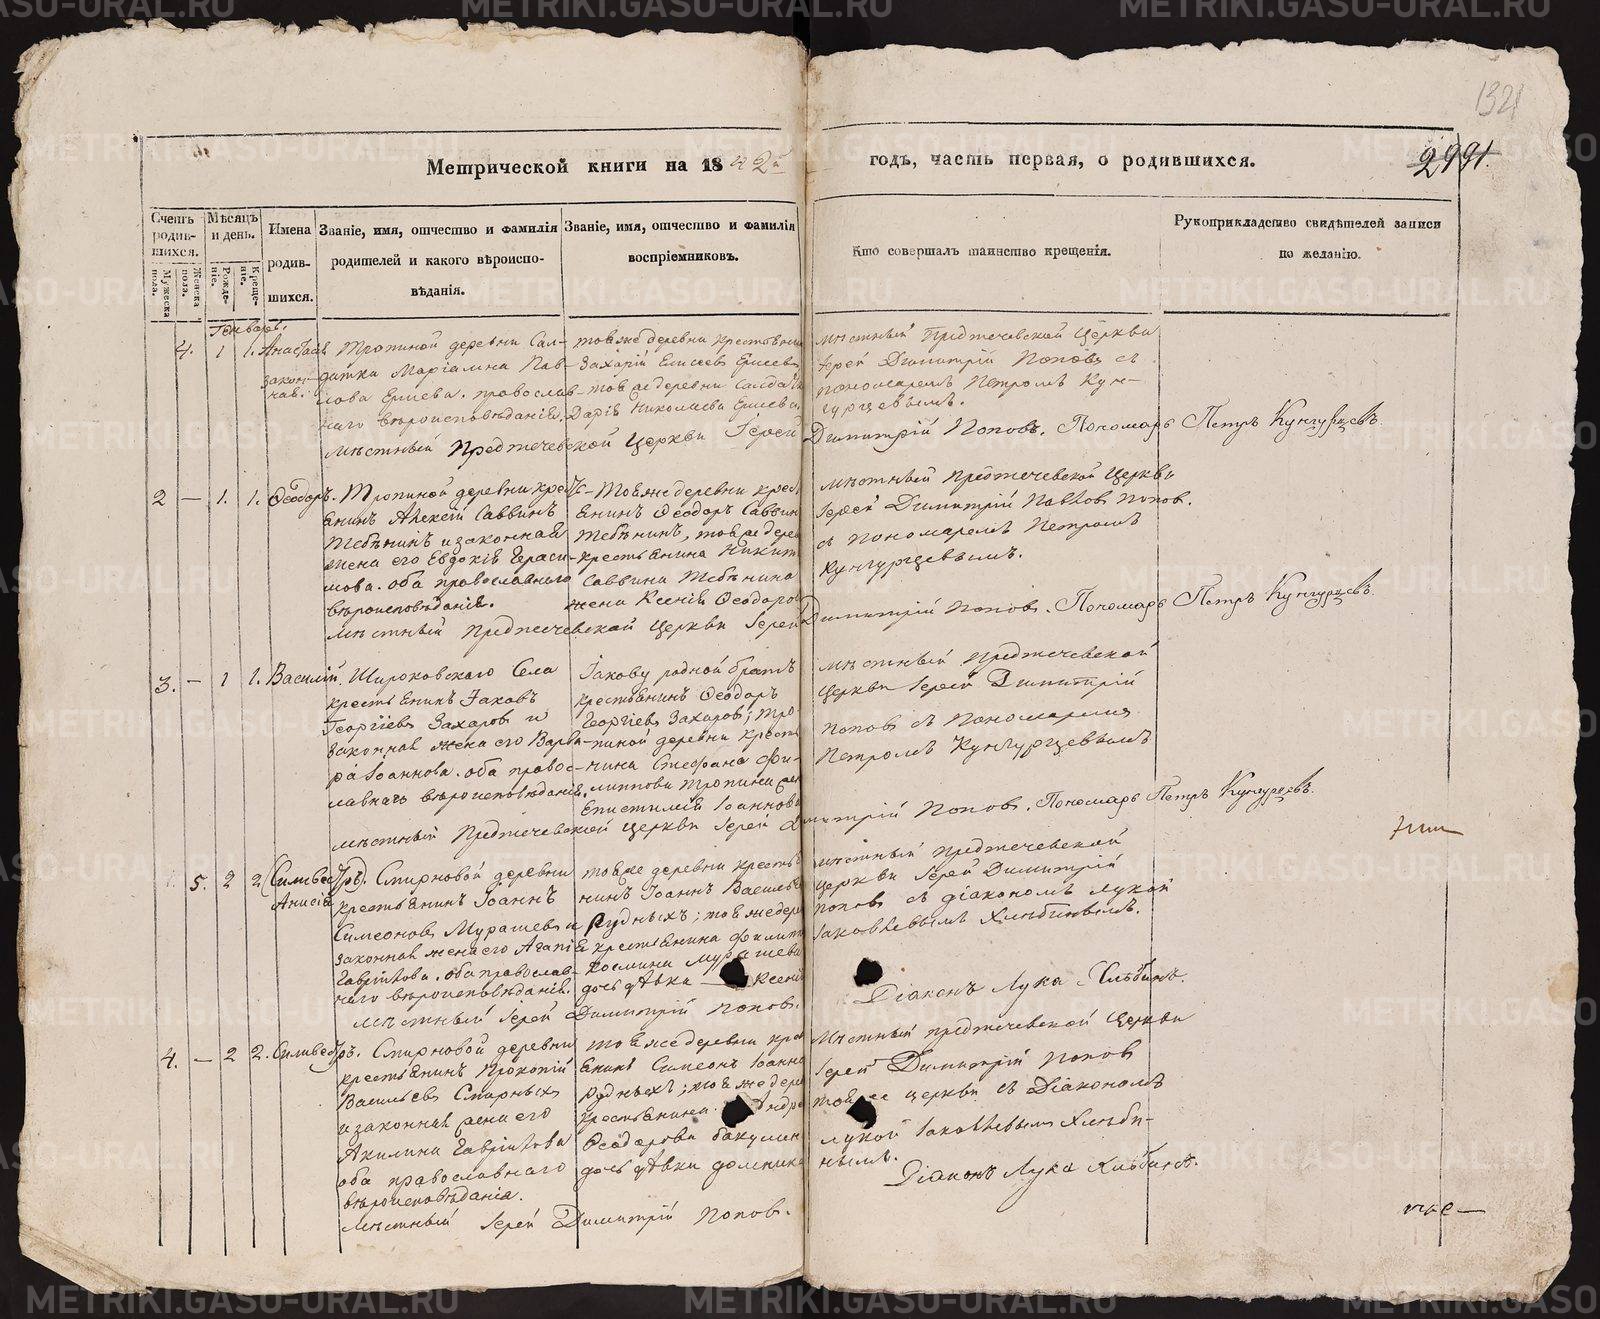 1321
2991.
Метрической книги на 1842й годъ, часть первая, о родившихся.
Счетъ родившихся.
Мужеска пола.
Женска пола.
Мѣсяцъ и день.
Рожденіе.
Крещеніе.
Имена родившихся.
Званіе, имя, отчество и фамилія родителей и какого вѣроисповѣданія.
Званіе, имя, отчество и фамилія воспріемниковъ.
Кто совершалъ таинство крещенія.
Рукоприкладство свидѣтелей записи по желанію.
Генварь.
4. 1 1. Анастасія
закон-
ная.
Тропиной деревни Сал-
датка Маріамна Пав-
лова Ершева. православ-
наго вѣроисповѣданія.
тояже деревни крестьянинъ
Захарій Елисеевъ Ершевъ
тоя же деревни Салдатк
Дарія Николаева Ершева
мѣстный Предтечевской Церкви
Іерей Димитрій Поповъ съ
пономаремъ Петромъ Кун-
гурцевымъ.
Мѣстный Предтечевской Церкви Іерей Димитрій Поповъ. Пономарь Петръ Кунгурцевъ.
2 — 1. 1. Ѳеодоръ.
Тропиной деревни крест-
янинъ Алексій Саввинъ
Тебѣнинъ и законная
жена его Евдокія Гераси-
мова. оба православнаго
вѣроисповѣданія.
Тояже деревни крест
янинъ Ѳеодоръ Саввин
Тебѣнинъ, тоя же дерев
крестьянина Никит
Саввина Тебѣнина
жена Ксенія Ѳеодоро
мѣстный Предтечевской Церкви
Іерей Димитрій Павлов Попов.
съ пономаремъ Петромъ
Кунгурцевымъ.
Мѣстный Предтечевской Церкви Іерей Димитрій Поповъ. Пономарь Петръ Кунгурцевъ.
3. — 1 1. Василій.
Широковскаго Села
крестьянинъ Іаковъ
Георгіевъ Захаровъ и
законная жена его Варва-
ра Іоаннова. оба право-
славнаго вѣроисповѣданія.
Іакову родной братъ
крестьянинъ Ѳеодоръ
Георгіевъ Захаровъ; Тро-
пиной деревни кресть
нина Стефана Фи-
липпова Тропина жен
Епистимія Іоаннова
мѣстный Предтечевской
Церкви Іерей Димитрій
Поповъ съ Пономаремъ
Петромъ Кунгурцевымъ
Мѣстный Предтечевской Церкви Іерей Димитрій Поповъ. Пономарь Петръ Кунгурцевъ.
5. 2 2 (Силивестръ).
Анисія
Смирновой деревни
крестьянинъ Іоаннъ
Симеоновъ Мурашевъ и
законная жена его Агапія
Гаврилова. оба православ-
наго вѣроисповѣданія.
тояже деревни кресть
нинъ Іоаннъ Васильев
Рудныхъ; тояже дере
крестьянина Филип
Космина Мурашева
дочь дѣвка Ксенія
мѣстный Предтечевской
церкви Іерей Димитрій
Поповъ съ діакономъ Лукой
Іаковлевымъ Хлѣбинымъ.
Мѣстный Іерей Димитрій Поповъ. Діаконъ Лука Хлѣбинъ.
4. — 2 2. Силивестръ.
Смирновой деревни
крестьянинъ Прокопій
Васильевъ Смирныхъ
и законная жена его
Акилина Гаврилова
оба православнаго
вѣроисповѣданія.
тояже деревни крест
янинъ Симеонъ Іоанно
Рудныхъ; тояже дере
крестьянина Андре
Ѳеодорова Бакулин
дочь дѣвка Домника
Мѣстный Предтечевской Церкви
Іерей Димитрій Поповъ
тоя же церкви съ Діакономъ
Лукой Іаковлевымъ Хлѣби-
нымъ.
Мѣстный Іерей Димитрій Поповъ. Діаконъ Лука Хлѣбинъ.
METRIKI.GASO-URAL.RU